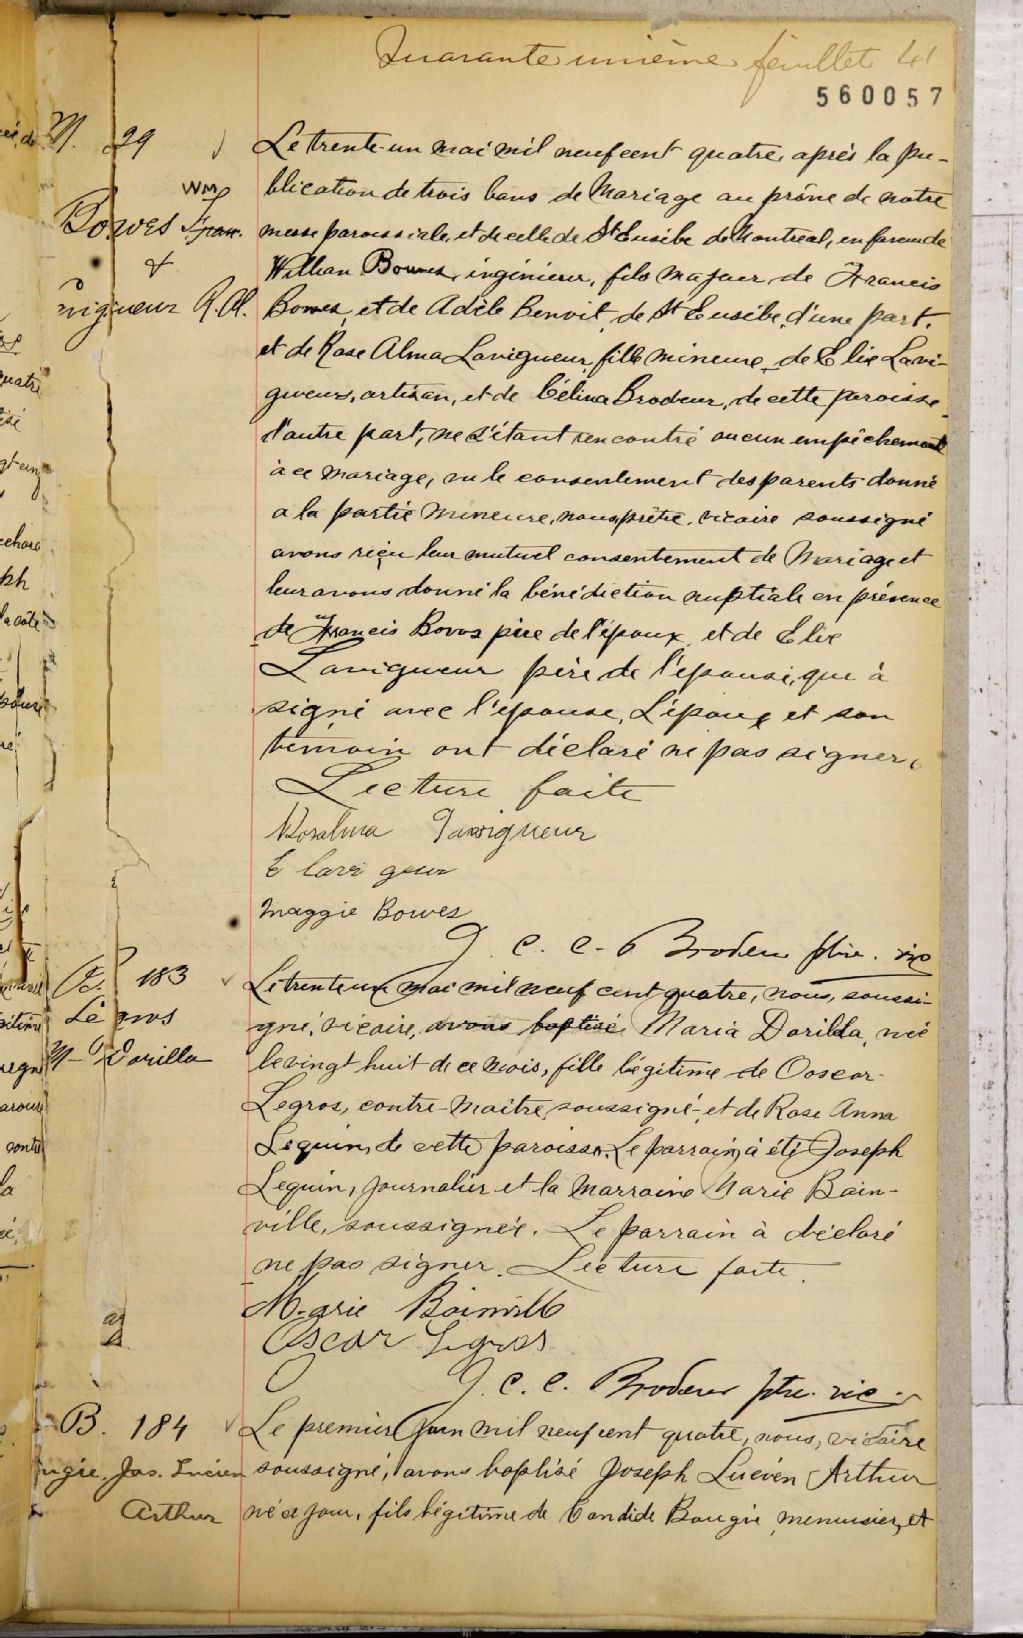 Quarante unième feuillet 41
560057
M. 29
Wm
Bowes Fran.
&
vigueur R. Al.
Le trente-un mai mil neuf cent quatre, après la pu-
blication de trois bans de Mariage au prône de notre
messe paroissiale, et de celle de St Eusèbe de Montréal, en faveur de
William Bowes, ingénieur, fils majeur de Francis
Bowes, et de Adèle Benoit, de St Eusèbe, d'une part,
et de Rose Alma Lavigueur, fille mineure, de Elie Lavi-
gueur, artisan, et de Célina Brodeur, de cette paroisse
d'autre part, ne s'étant rencontré aucun empêchement
à ce mariage, vu le consentement des parents donné
a la partie mineure, nous, prêtre, vicaire soussigné
avons reçu leur mutuel consentement de Mariage et
leur avons donné la bénédiction nuptiale en présence
de Francis Bowes père de l'époux, et de Elie
Lavigueur père de l'épouse, qui à
signé avec l'épouse, L'époux et son
témoin ont déclaré ne pas signer,
Lecture faite
Rosalma Lavigueur
E Lavi gueur
Maggie Bowes
J. C. C. Brodeur ptre. vic
183
Le gros
M- Dorilla
Le trente un mai mil neuf cent quatre, nous, soussi-
gné, vicaire, avons baptisé Maria Dorilda, née
le vingt huit de ce mois, fille légitime de Ooscar
Legros, contre-maître, soussigné, et de Rose Anna
Lequin, de cette paroisse. Le parrain à été Joseph
Lequin, journalier et la marraine Marie Bain-
ville, soussignée. Le parrain à déclaré
ne pas signer. Lecture faite.
Marie Bainville
Oscar Legros
J. C. C. Brodeur ptre. vic.
B. 184
ugie. Jos. Lucien
Arthur
Le premier Juin mil neuf cent quatre, nous, vicaire
soussigné, avons baptisé Joseph Lucien Arthur
né ce jour, fils légitime de Candide Baugie, menuisier, et